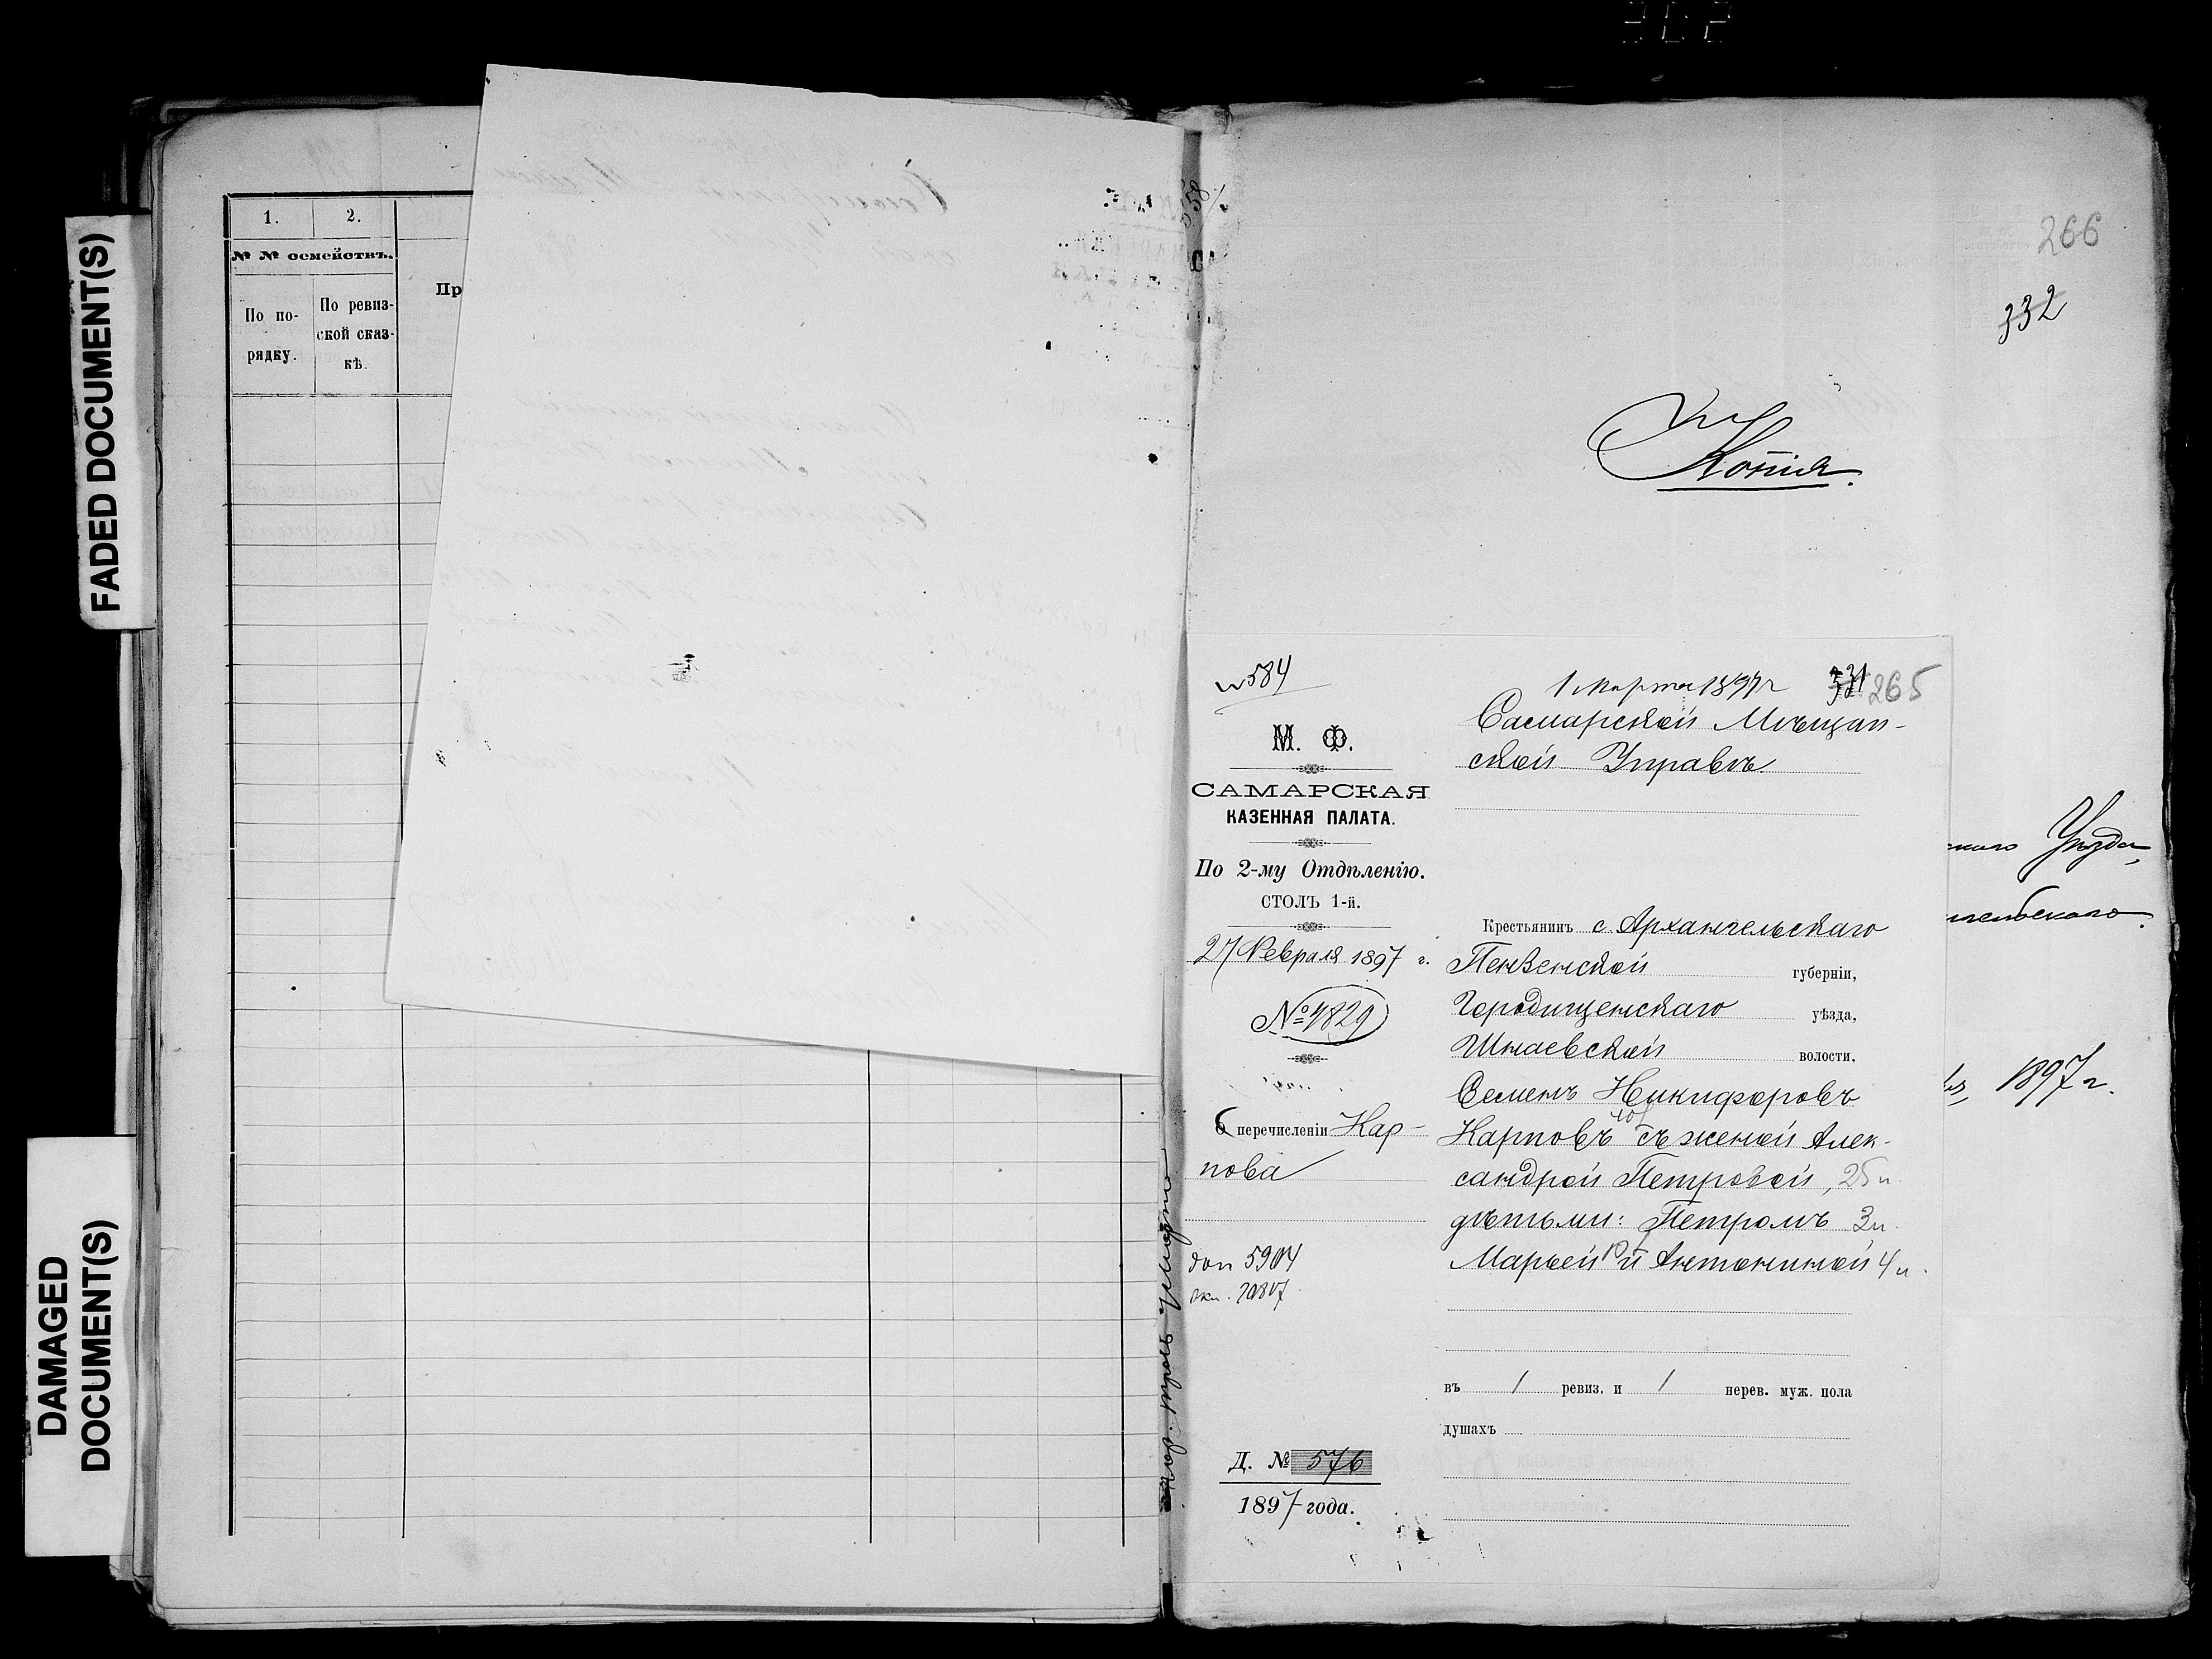 FADED DOCUMENT(S)
DAMAGED
DOCUMENT(S)
1.
2.
№ № семействъ.
По по-
рядку.
По ревиз-
ской сказ-
кѣ.
Пр
266
332
Копія.
Уѣзда,
1897 г.
№ 584
1 Марта 1897 г
331
265
М. Ф.
САМАРСКАЯ
КАЗЕННАЯ ПАЛАТА.
По 2-му Отдѣленію.
СТОЛЪ 1-й.
27 Февраля 1897 г.
№ 4829
О перечисленіи Кар-
пова
доп 5904
Д. № 576
1897 года.
Самарской Мѣщан-
ской Управѣ.
Крестьянинъ с. Архангельскаго
Пензенской губерніи,
Городищенскаго уѣзда,
Шнаевской волости,
Семенъ Никифоровъ
Карповъ съ женой Алек-
сандрой Петровой, 25 л.
дѣтьми: Петромъ 3 л.
Марьей и Антониной 4 л.
въ 1 ревиз. и 1 нерев. муж. пола
душахъ